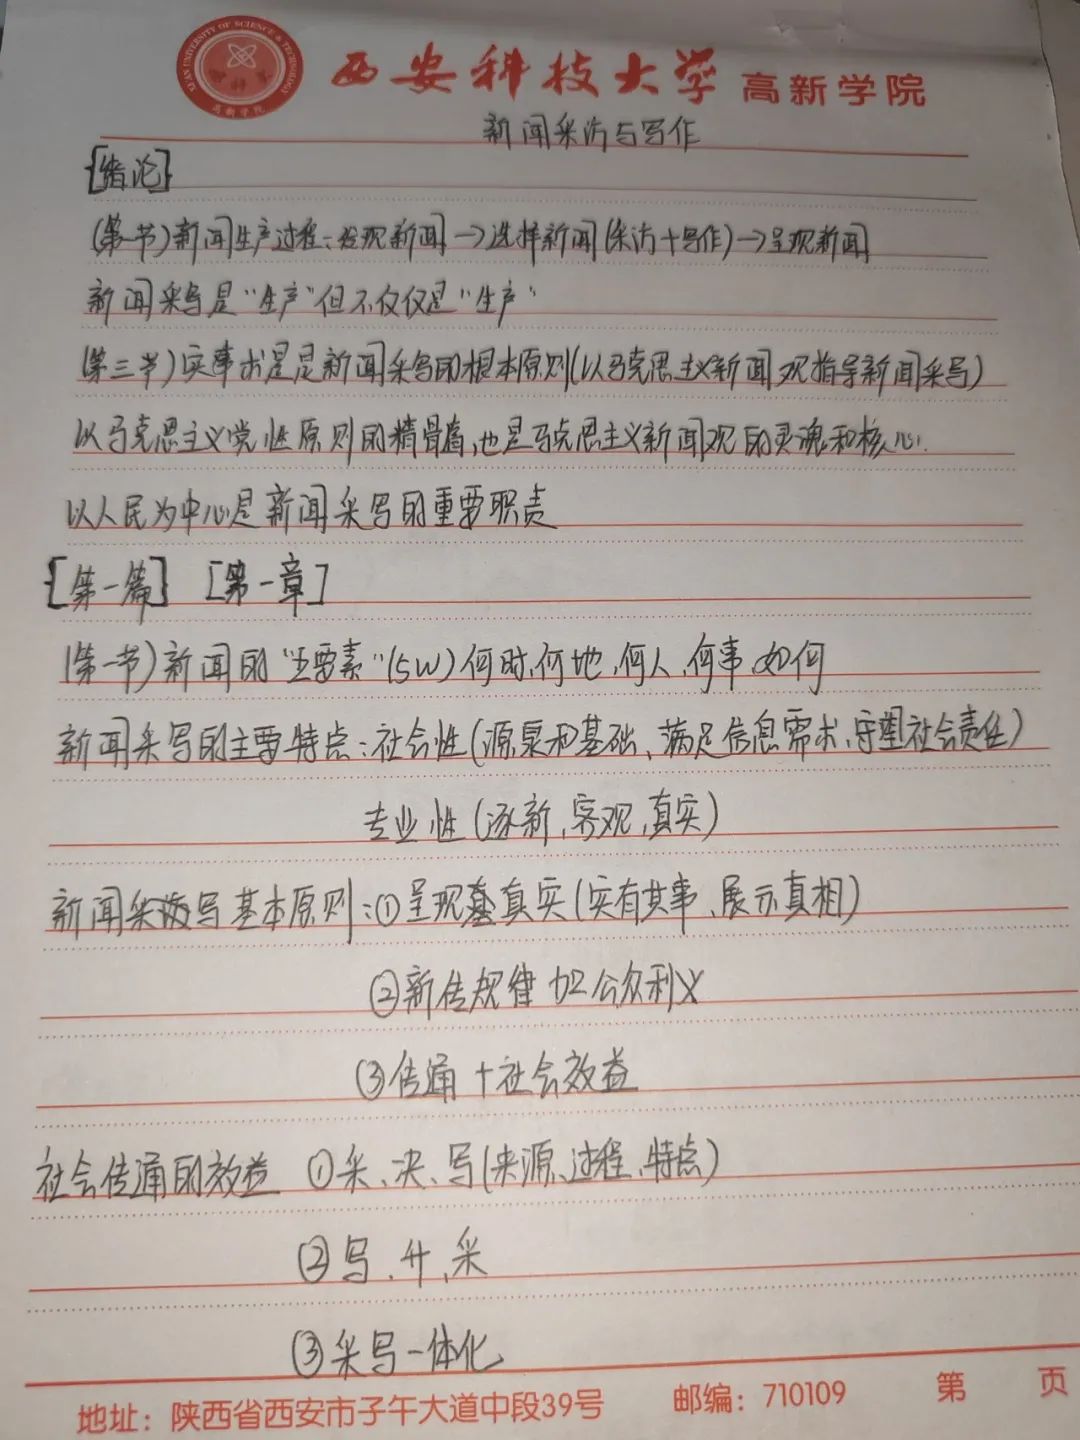 XI'AN UNIVERSITY OF SCIENCE & TECHNOLOGY
高新学院
西安科技大学 高新学院
新闻采访与写作
[绪论]
(第一节)新闻生产过程:发现新闻→选择新闻(采访+写作)→呈现新闻
新闻采写是"生产"但不仅仅是"生产"
(第三节)实事求是是新闻采写的根本原则(以马克思主义新闻观指导新闻采写)
以马克思主义党性原则的精骨髓,也是马克思主义新闻观的灵魂和核心.
以人民为中心是新闻采写的重要职责
[第一篇] [第一章]
(第一节)新闻的"主要素"(5W)何时,何地,何人,何事,如何
新闻采写的主要特点:社会性(源泉和基础、满足信息需求、守望社会责任)
专业性(逐新,客观,真实)
新闻采写基本原则:①呈现真实(实有其事、展示真相)
②新传规律 公众利义
③传通+社会效益
社会传通的效益 ①采、决、写(来源、过程、特点)
②写、升、采
③采写一体化
地址:陕西省西安市子午大道中段39号 邮编:710109 第 页